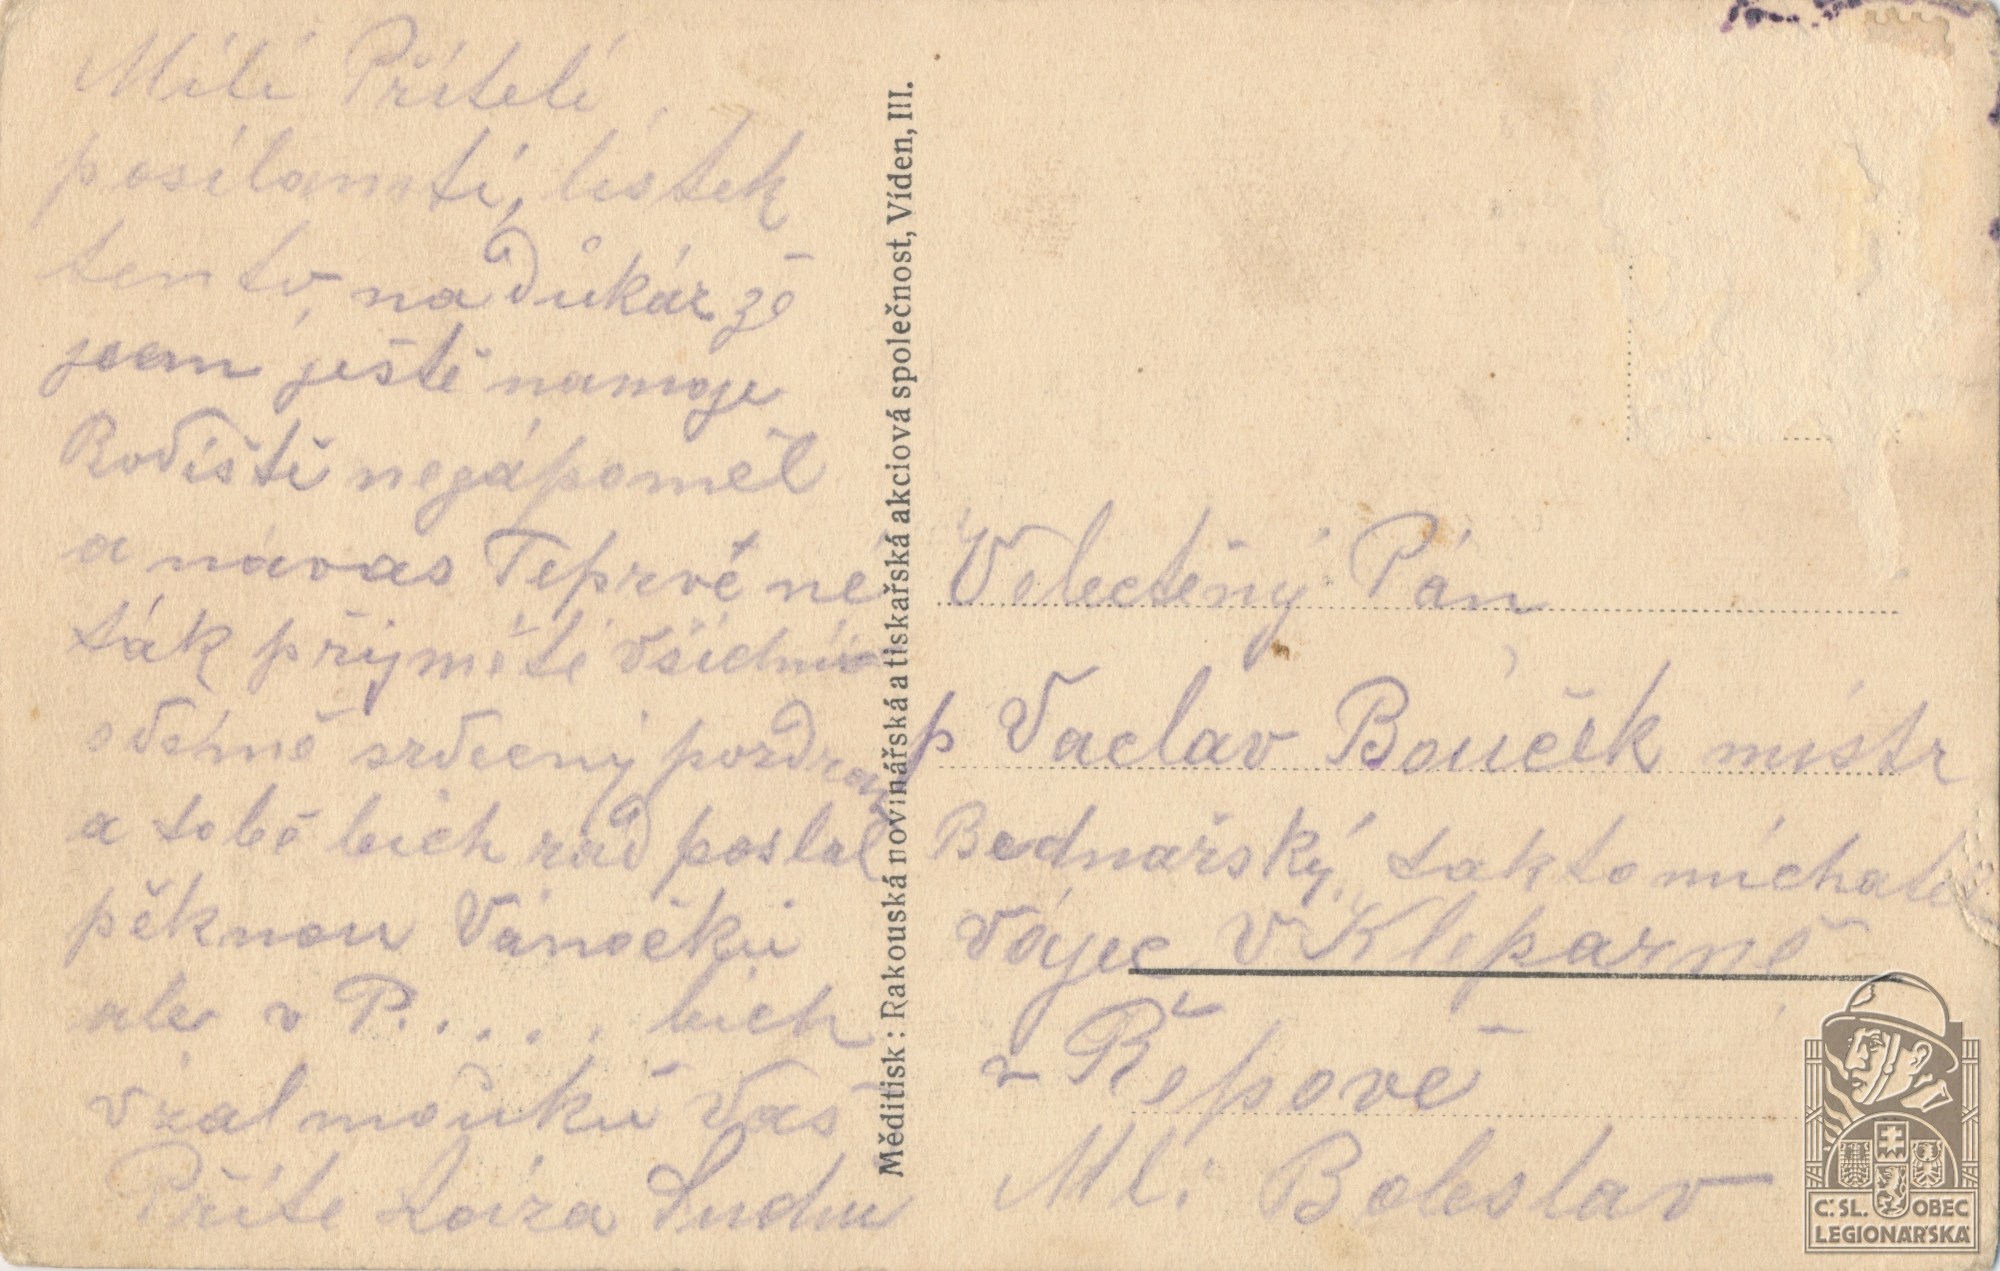 Milí Přítelí
posílamtí, lístek
tento, na důkáz žé
jsem ještě namoje
Rodíště nezápoměl
a návas Teprvé né
ták přijměte všichni
odemně srdecný pozdrav
a tobě bich rád poslal
pěknou Vánočku
ale v P..... bich
vzal moůkú Váš
Příte Loiza
Méditisk: Rakouská novinářská a tiskařská akciová společnost, Víden, III.
Velectěný Pán
p Vaclav Bouček místr
Bednářský, taktomíchatel
Vájec v Kleparně
v Řépově
Ml: Boleslav
Č:SL. OBEC
LEGIONÁŘSKÁ